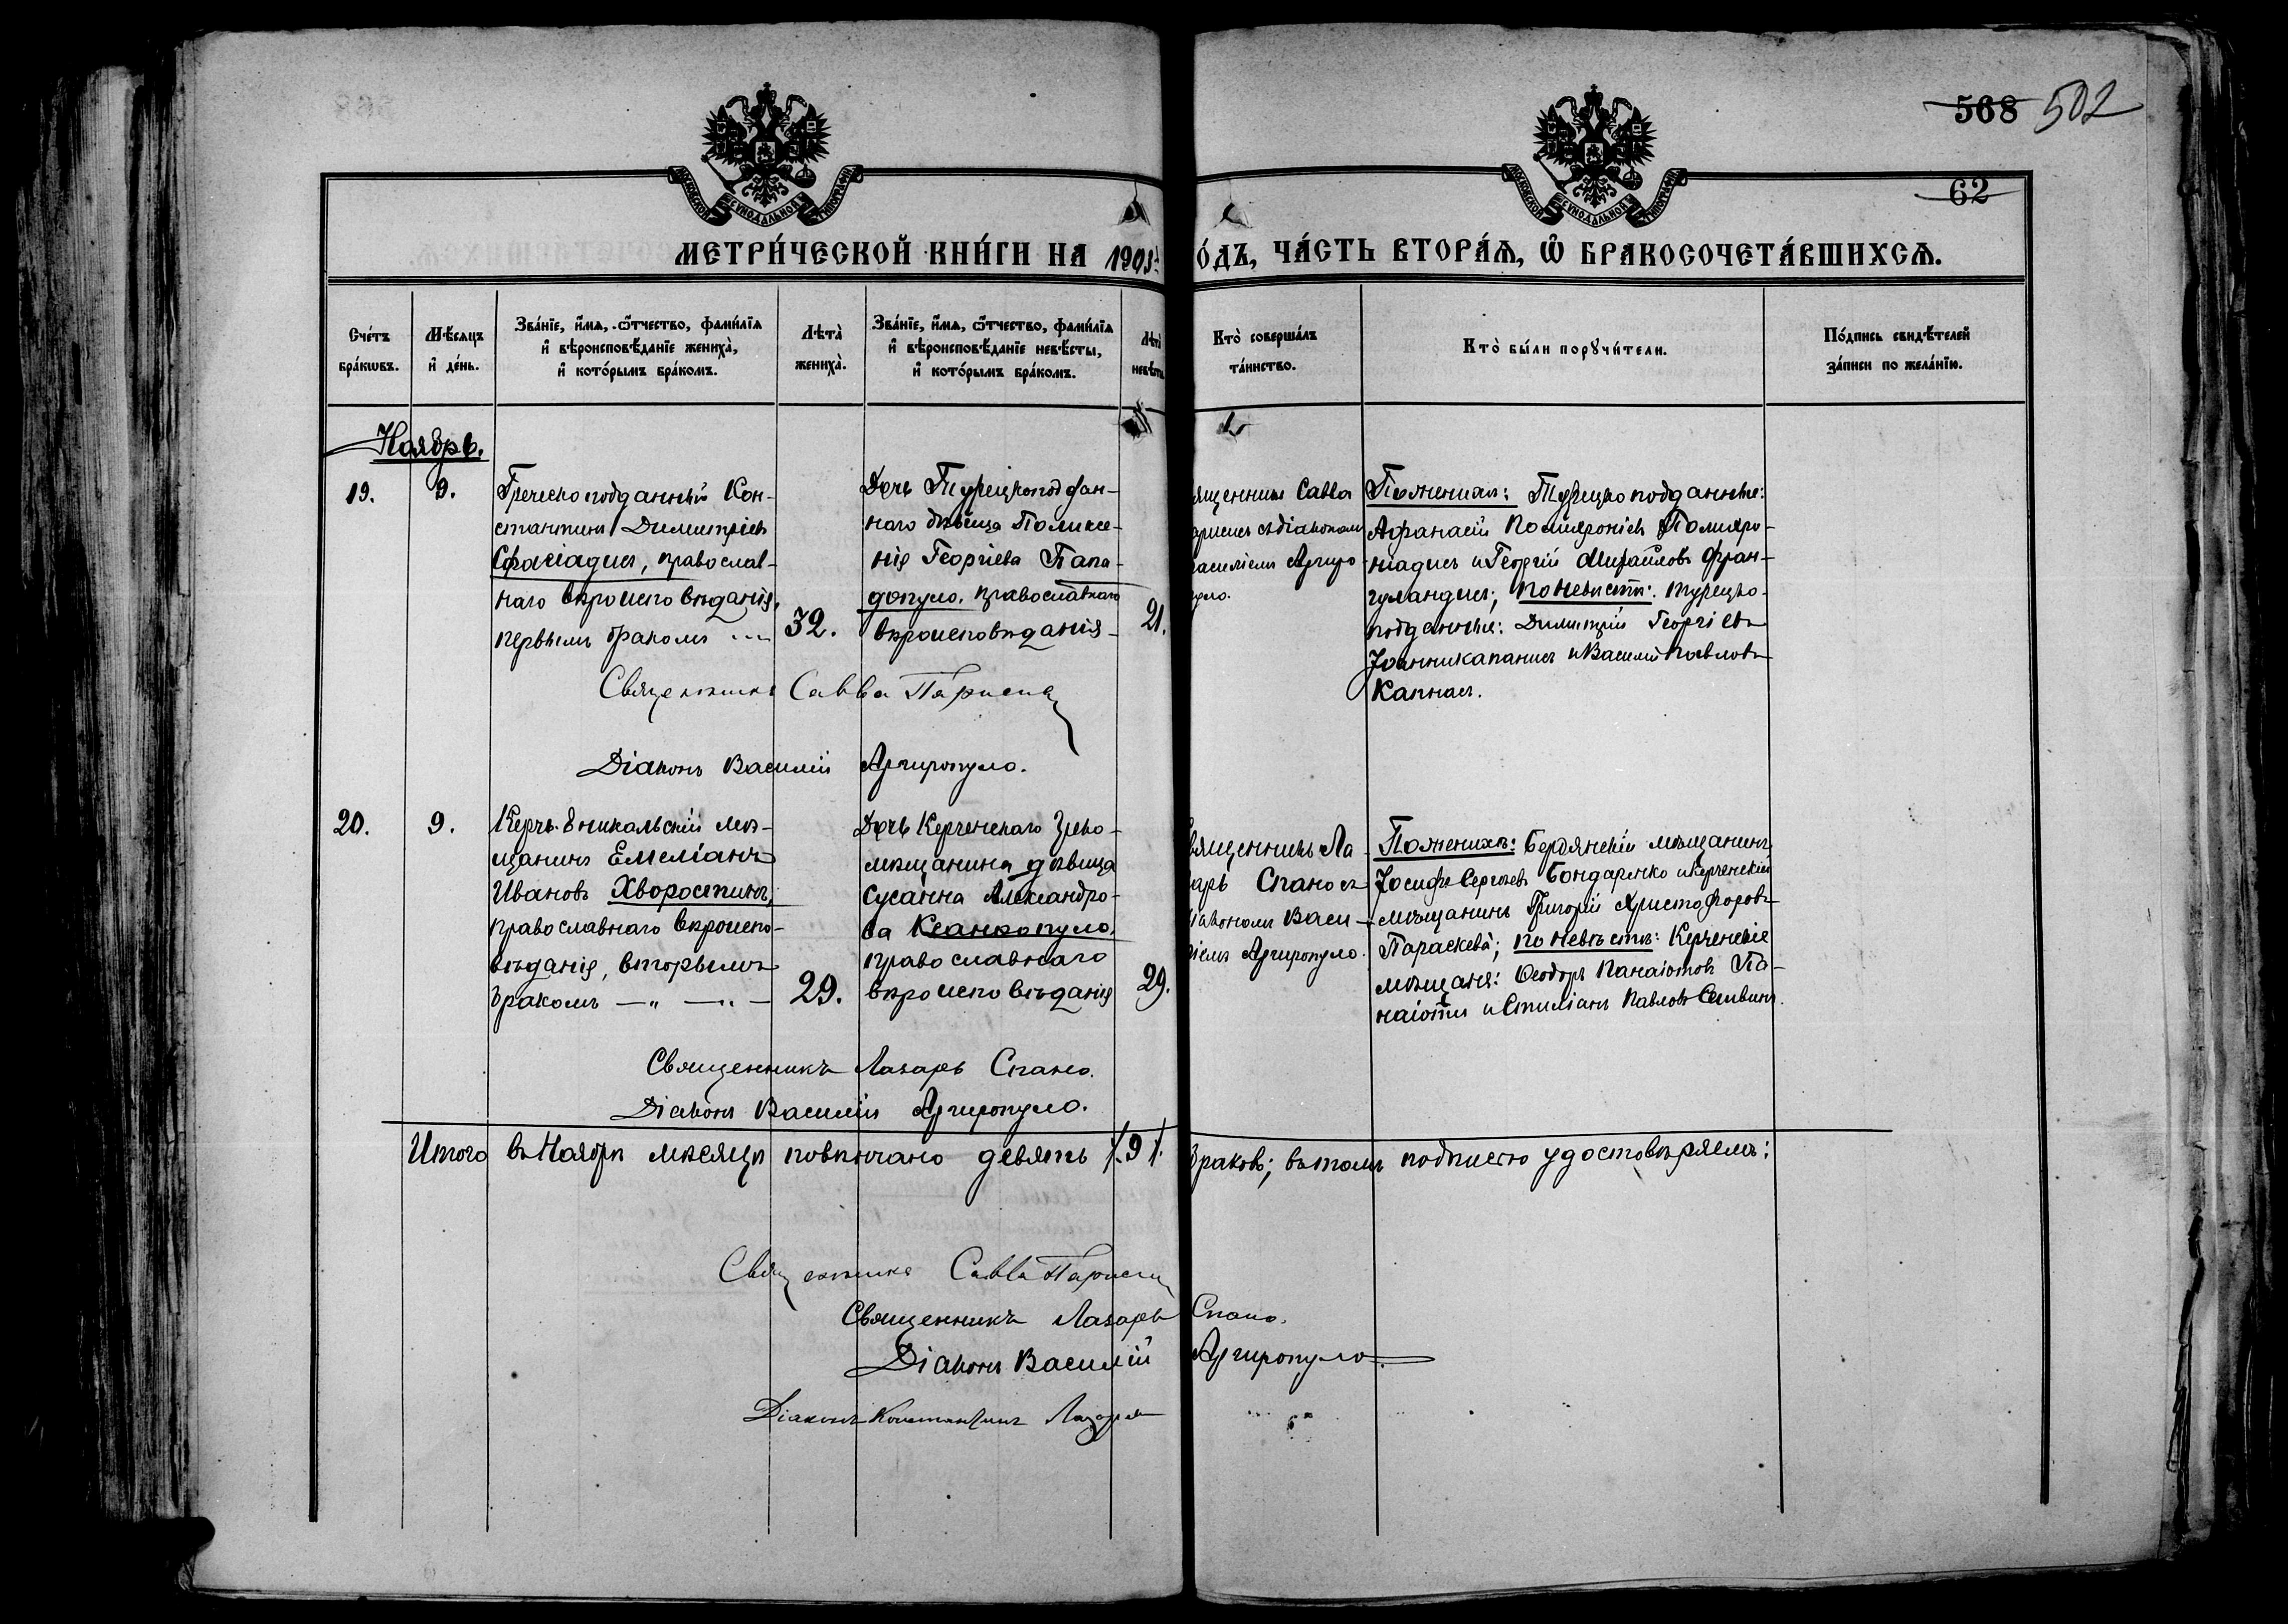 568 502
62
МЕТРИ́ЧЕСКОЙ КНИ́ГИ НА 1903 О́ДЪ, ЧА́СТЬ ВТОРА́Я, Ѽ БРАКОСОЧЕТА́ВШИХСЯ.
Сче́тъ бра́кѡвъ.
Мѣ́сяцъ и҆ де́нь.
Зва́нїе, и҆́мя, ѻ҆́тчество, фами́лїя и҆ вѣроисповѣ́данїе жениха̀, и҆ кото́рымъ бра́комъ.
Лѣта̀ жениха̀.
Зва́нїе, и҆́мя, ѻ҆́тчество, фами́лїя и҆ вѣроисповѣ́данїе невѣ́сты, и҆ кото́рымъ бра́комъ.
Лѣта̀ невѣсты
Кто̀ соверша́лъ та́инство.
Кто̀ бы́ли порꙋчи́тели.
По́дпись свидѣ́телей за́писи по жела́нїю.
Ноябрь.
19.
9.
Греческоподданный Кон-
стантинъ Димитріевъ
Сфакіадисъ, православ-
наго вѣроисповѣданія,
первымъ бракомъ
32.
Дочь Турецкоподдан-
наго дѣвица Поликсе-
нія Георгіева Папа-
допуло, православнаго
вѣроисповѣданія
21.
ященникъ Савва
арисисъ съ діакономъ
асиліемъ Аргиро
уло.
По женихѣ: Турецкоподданные:
Афанасій Полихроніевъ Полихро-
ніадисъ и Георгій Михайловъ Фран-
гуландисъ; по невѣстѣ: турецко-
подданные: Димитрій Георгіевъ
Іоанникапанисъ и Василій Павловъ
Капнасъ.
Священникъ Савва Парисис
Діаконъ Василій Аргиропуло.
20.
9.
Керчь-Еникальскій мѣ-
щанинъ Емеліанъ
Ивановъ Хворостинъ,
православнаго вѣроиспо-
вѣданія, вторымъ
бракомъ — „ — „ —
29.
Дочь Керченскаго Греко-
мѣщанина дѣвица
Сусанна Александро-
ва Ксанкопуло,
православнаго
вѣроисповѣданія
29.
вященникъ Ла-
арь Спано съ
іакономъ Васи-
ліемъ Аргиропуло.
По женихѣ: Бердянскій мѣщанинъ
Іосифъ Сергѣевъ Бондаренко и Керченскій
мѣщанинъ Григорій Христофоровъ
Параскева; по невѣстѣ: Керченскіе
мѣщане: Ѳеодоръ Панаіотовъ Па-
наіоти и Стиліанъ Павловъ
Священникъ Лазарь Спано.
Діаконъ Василій Аргиропуло.
Итого въ Ноябрѣ мѣсяцѣ повѣнчано девять /.9/. браковъ; въ томъ подписью удостовѣряемъ:
Священникъ Савва Парисис
Священникъ Лазарь Спано.
Діаконъ Василій Аргиропуло.
Діаконъ Константинъ